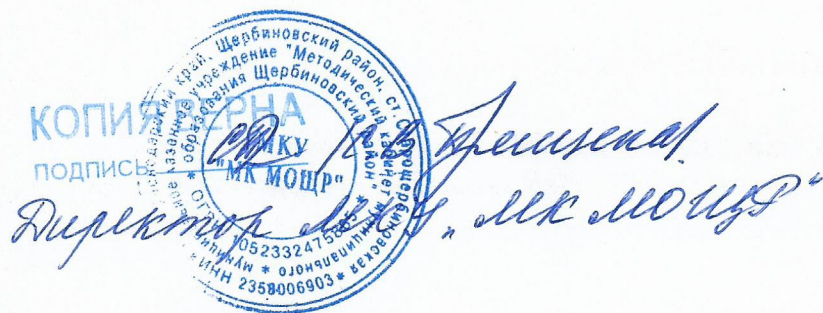 КОПИЯ ВЕРНА
подпись
Краснодарский край, Щербиновский район, ст. Старощербиновская
муниципальное казенное учреждение "Методический кабинет муниципального образования Щербиновский район"
МКУ
"МК МОЩР"
ИНН 2358006903
Директор МКУ „МК МОЩР"